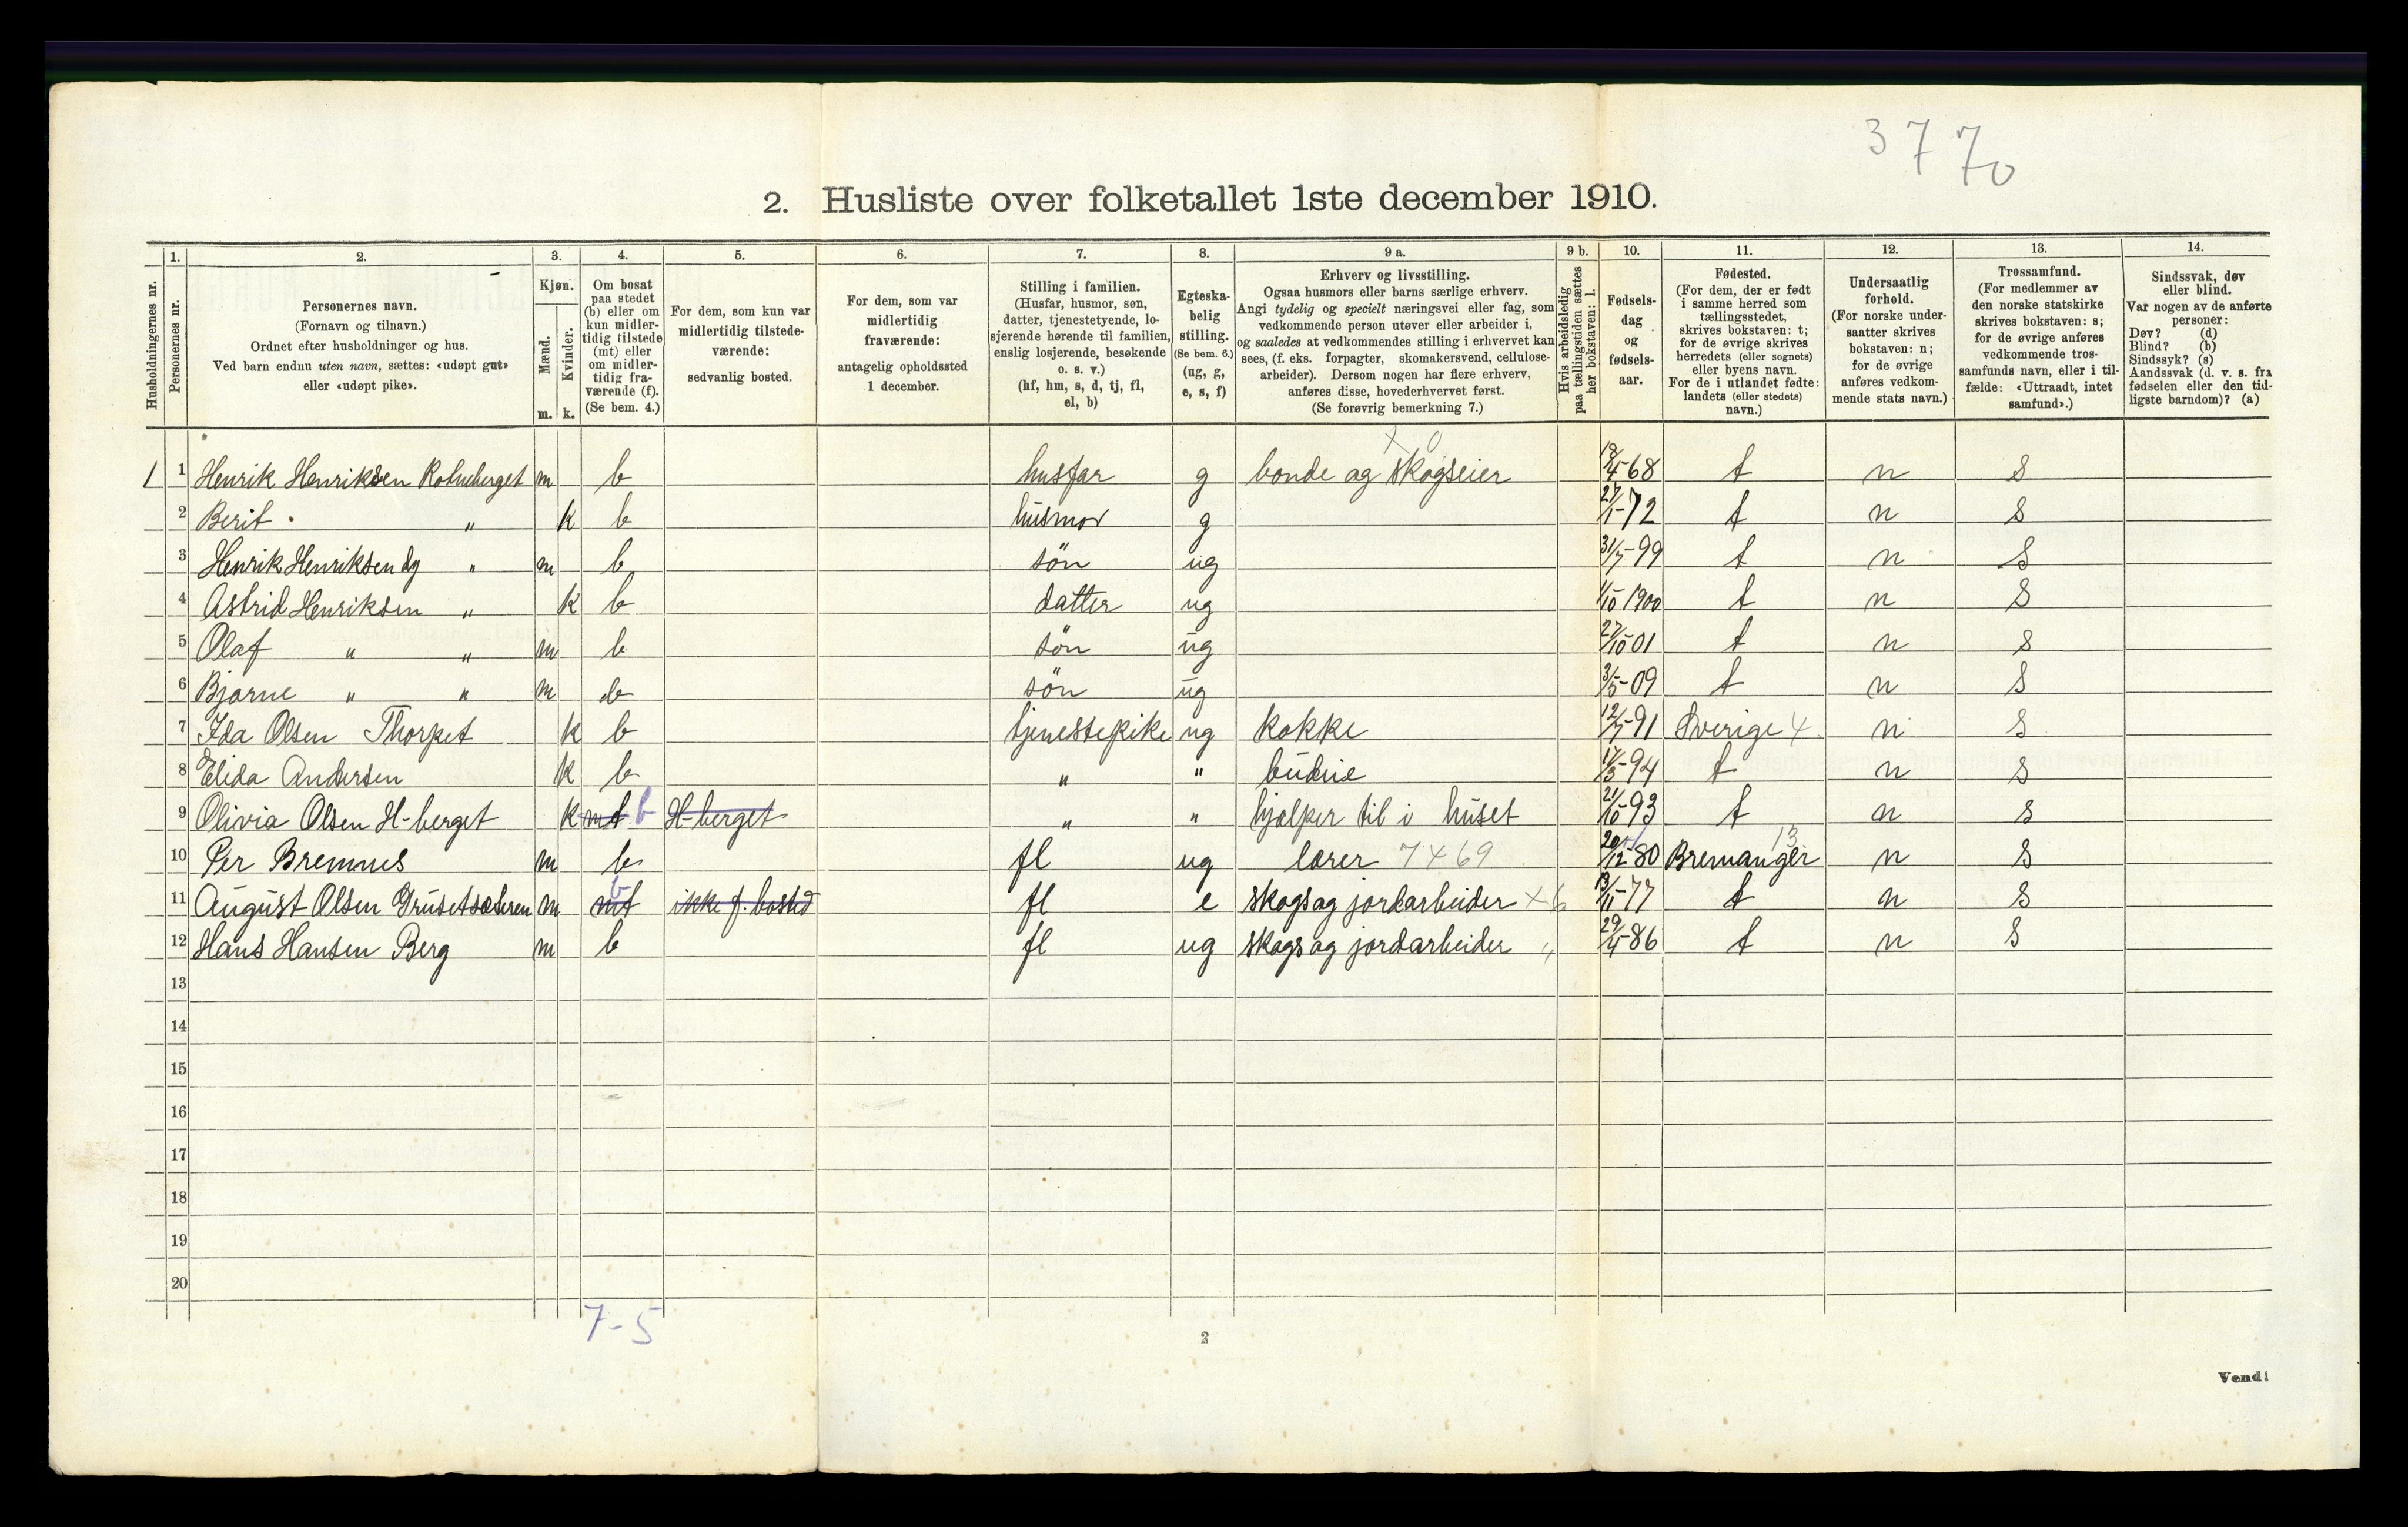 3 7 70
2. Husliste over folketallet 1ste december 1910.
Husholdningernes nr.
1.
Personernes nr.
2.
Personernes navn.
(Fornavn og tilnavn.)
Ordnet efter husholdninger og hus.
Ved barn endnu uten navn, sættes: «udøpt gut»
eller «udøpt pike».
3.
Kjøn.
Mænd.
m.
Kvinder.
k.
4.
Om bosat
paa stedet
(b) eller om
kun midler-
tidig tilstede
(mt) eller
om midler-
tidig fra-
værende (f).
(Se bem. 4.)
5.
For dem, som kun var
midlertidig tilstede-
værende:
sedvanlig bosted.
6.
For dem, som var
midlertidig
fraværende:
antagelig opholdssted
1 december.
7.
Stilling i familien.
(Husfar, husmor, søn,
datter, tjenestetyende, lo-
sjerende hørende til familien,
enslig losjerende, besøkende
o. s. v.)
(hf, hm, s, d, tj, fl,
el, b)
8.
Egteska-
belig
stilling.
(Se bem. 6.)
(ug, g,
e, s, f)
9 a.
Erhverv og livsstilling.
Ogsaa husmors eller barns særlige erhverv.
Angi tydelig og specielt næringsvei eller fag, som
vedkommende person utøver eller arbeider i,
og saaledes at vedkommendes stilling i erhvervet kan
sees, (f. eks. forpagter, skomakersvend, cellulose-
arbeider). Dersom nogen har flere erhverv,
anføres disse, hovederhvervet først.
(Se forøvrig bemerkning 7.)
9 b.
Hvis arbeidsledig
paa tællingstiden sættes
her bokstaven: l.
10.
Fødsels-
dag
og
fødsels-
aar.
11.
Fødested.
(For dem, der er født
i samme herred som
tællingsstedet,
skrives bokstaven: t;
for de øvrige skrives
herredets (eller sognets)
eller byens navn.
For de i utlandet fødte:
landets (eller stedets)
navn.)
12.
Undersaatlig
førhold.
(For norske under-
saatter skrives
bokstaven: n;
for de øvrige
anføres vedkom-
mende stats navn.)
13.
Trossamfund.
(For medlemmer av
den norske statskirke
skrives bokstaven: s;
for de øvrige anføres
vedkommende tros-
samfunds navn, eller i til-
fælde: «Uttraadt, intet
samfund».)
14.
Sindssvak, døv
eller blind.
Var nogen av de anførte
personer:
Døv? (d)
Blind? (b)
Sindssyk? (s)
Aandssvak (d. v. s. fra
fødselen eller den tid-
ligste barndom)? (a)
1 1 Henrik Henriksen m b husfar g bonde og skogseier 18/4-68 t n S
2 Berit " k b husmor g 27/1-72 t n S
3 Henrik Henriksen dy " m b søn ug 31/7-99 t n S
4 Astrid Henriksen " k b datter ug 1/10 1900 t n S
5 Olaf " " m b søn ug 27/10 01 t n S
6 Bjarne " " m b søn ug 3/5-09 t n S
7 Ida Olsen Thorpet k b tjenestepike ug kokke 12/7-91 Sverige 4 n S
8 Elida Andersen k b " " budeie 17/3-94 t n S
9 Olivia Olsen H-berget k mt b H-berget " " hjælper til i huset 21/10-93 t n S
10 Per Bremnes m b fl ug lærer 7469 20/12-80 Bremanger 13 n S
11 August Olsen Grusetsæteren m mt b ikke f. bosted fl e skogs og jordarbeider x 6 13/11-77 t n S
12 Hans Hansen Berg m b fl ug skogs og jordarbeider " 29/4-86 t n S
13
14
15
16
17
18
19
20
7-5
2
Vend!